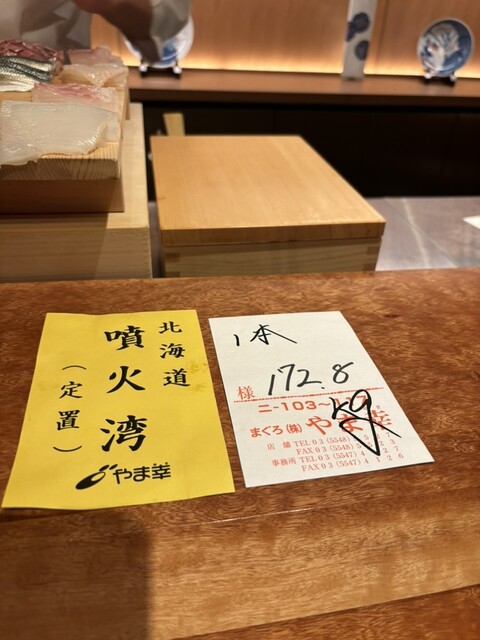 北海道
噴火湾
（定置）
やま幸
1本
172.8
様
ニ-103~
59
まぐろ(株)やま幸
店舗 TEL 03 (5548)
FAX 03 (5548)
事務所 TEL 03 (5547) 4
FAX 03 (5547) 4126